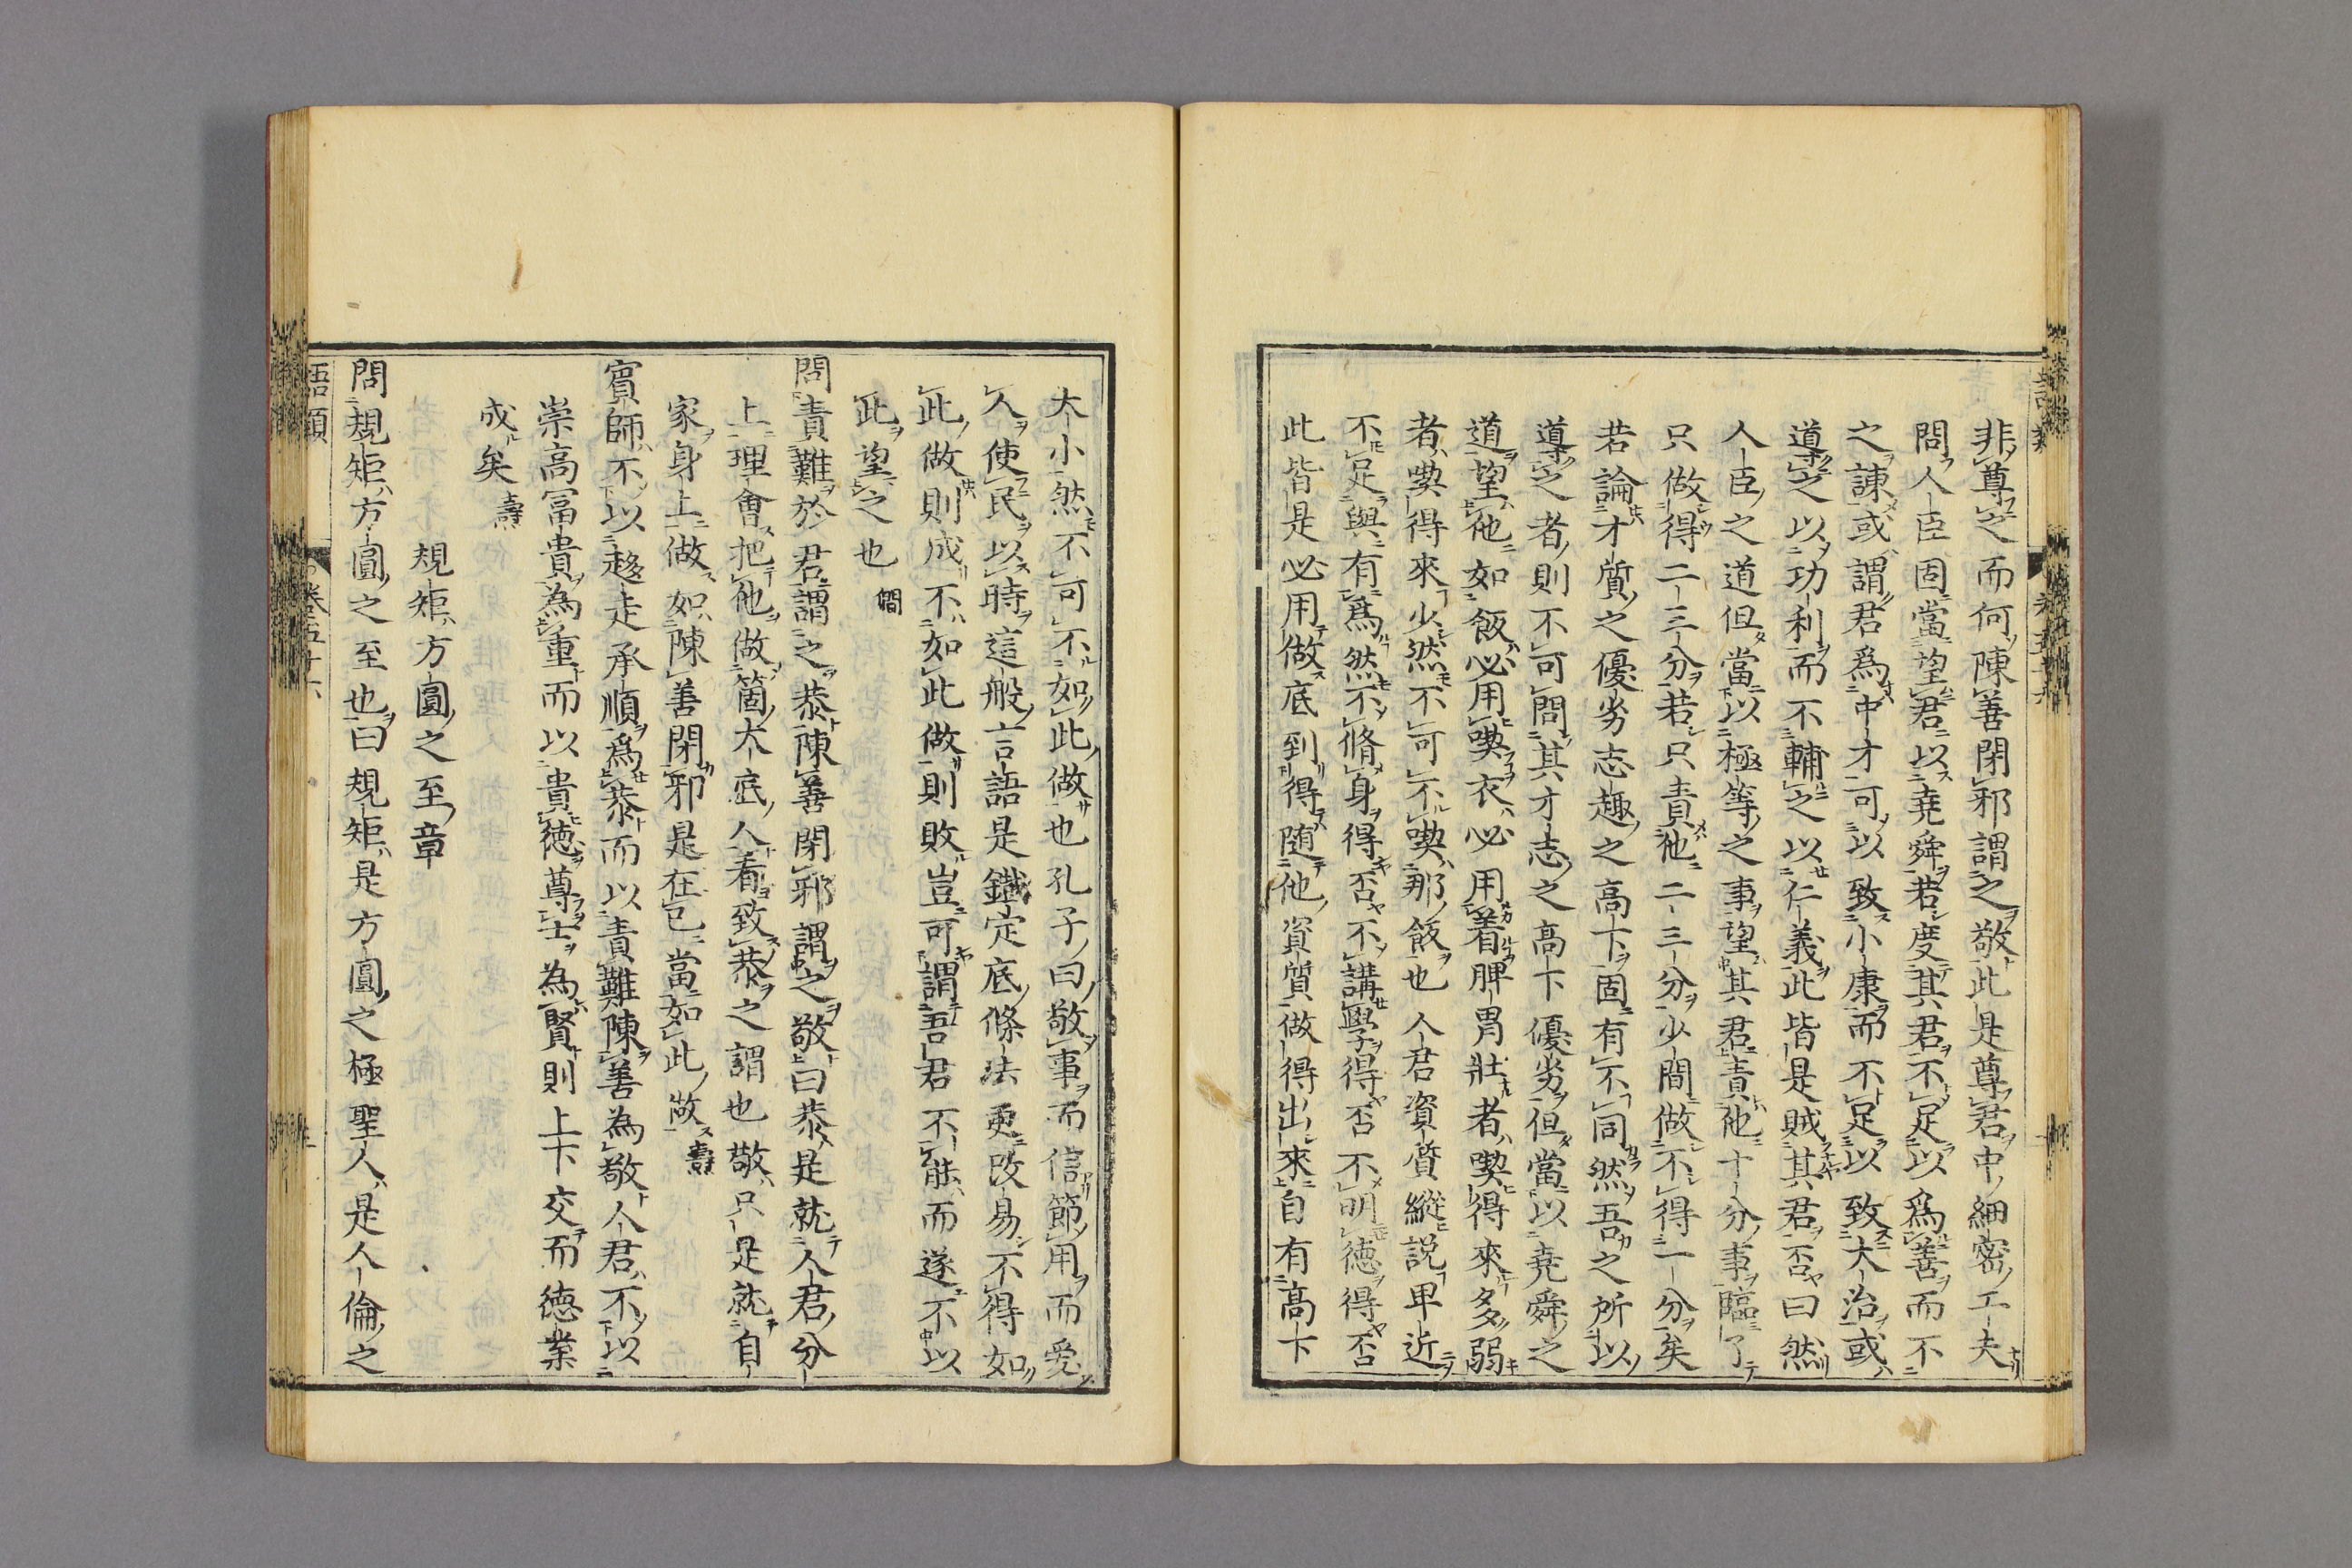 非尊之而何陳善閉邪謂之敬此是尊君中細密工夫
問人臣固當望君以堯舜若度其君不足以爲善而不
之諫或謂君爲中才可以致小康而不足以致大治或
導之以功利而不輔之以仁義此皆是賊其君否曰然
人臣之道但當以極等之事望其君責他十分事臨了
只做得二三分若只責他二三分少間做不得一分矣
若論才質之優劣志趣之高下固有不同然吾之所以
導之者則不可問其才志之高下優劣但當以堯舜之
道望他如飯必用喫衣必用着脾胃壯者喫得來多弱
者喫得來少然不可不喫那飯也人君資質縱說卑近
不足與有爲然不脩身得否不講學得否不明徳得否
此皆是必用做底到得随他資質做得出來自有高下
大小然不可不如此做也孔子曰敬事而信節用而愛
人使民以時這般言語是鐵定底條法更改易不得如
此做則成不如此做則敗豈可謂吾君不能而遂不以
此望之也 僩
問責難於君謂之恭陳善閉邪謂之敬曰恭是就人君分
上理會把他做箇大底人看致恭之謂也敬只是就自
家身上做如陳善閉邪是在己當如此做 壽
賓師不以趍走承順爲恭而以責難陳善為敬人君不以
崇高冨貴為重而以貴徳尊士為賢則上下交而徳業
成矣 壽
規矩方圓之至章
問規矩方圓之至也曰規矩是方圓之極聖人是人倫之
語類 卷五十六